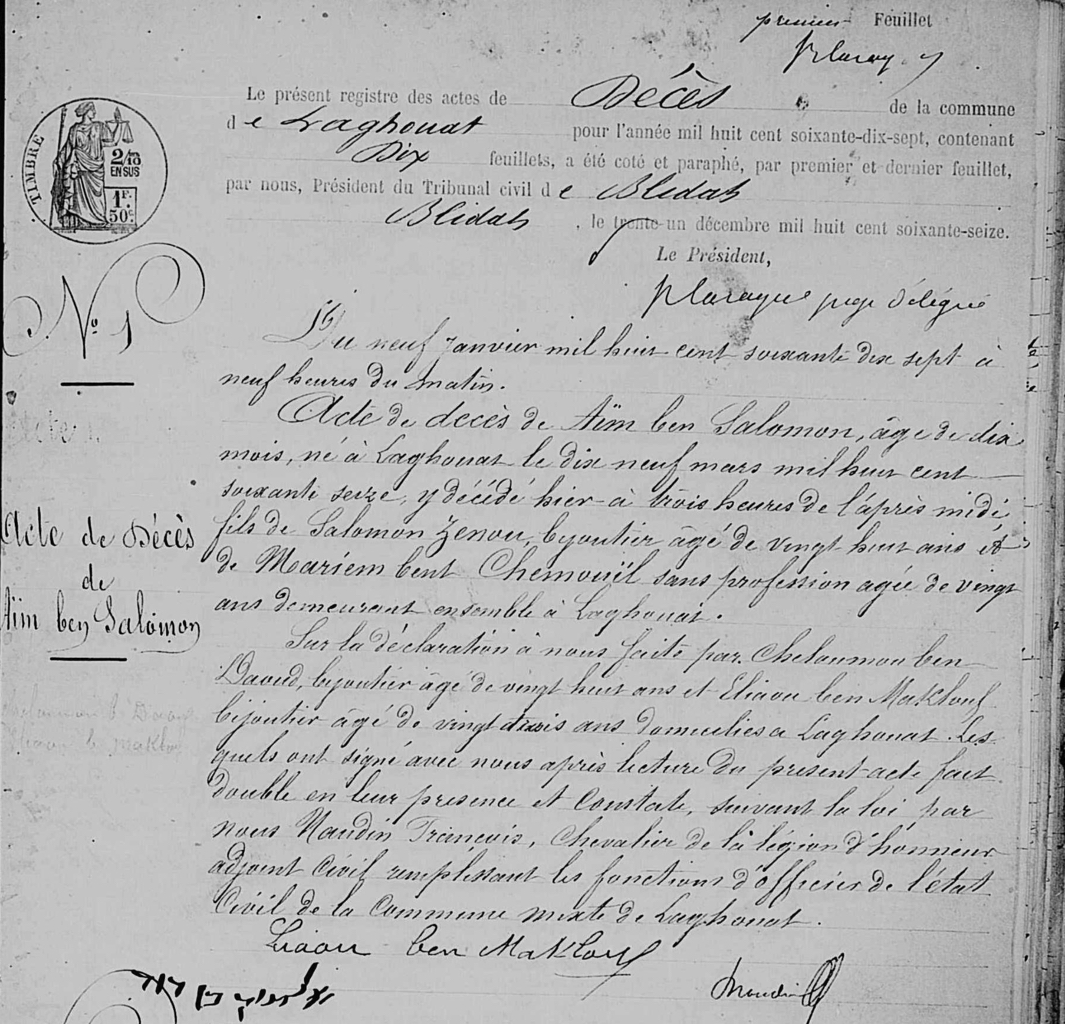 premier Feuillet
Le présent registre des actes de Décès de la commune
de Laghouat pour l'année mil huit cent soixante-dix-sept, contenant
Dix feuillets, a été coté et paraphé, par premier et dernier feuillet,
par nous, Président du Tribunal civil de Blidah
Blidah, le trente-un décembre mil huit cent soixante-seize.
Le Président,
juge délégué
TIMBRE
2/10
EN SUS
1F.
50c.
No 1
Acte de Décès
de
Aïm ben Salomon
Du neuf Janvier mil huit cent soixante dix sept à
neuf heures du matin.
Acte de décès de Aïm ben Salomon, âgé de dix
mois, né à Laghouat le dix neuf mars mil huit cent
soixante seize, y décédé hier à trois heures de l'après midi
fils de Salomon Zenou, bijoutier âgé de vingt huit ans et
de Mariem bent Chemouïl sans profession agée de vingt
ans demeurant ensemble à Laghouat.
Sur la déclaration à nous faite par Cheloumou ben
Daoud, bijoutier âgé de vingt huit ans et Eliaou ben Maklouf
bijoutier âgé de vingt ans domiciliés a Laghouat. Les
quels ont signé avec nous après lecture du present acte fait
double en leur presence et Constaté, suivant la loi par
nous Naudin François, Chevalier de la légion d'honneur
adjoint Civil remplissant les fonctions d'officier de l'état
Civil de la Commune mixte de Laghouat.
Liaou ben Maklouf
בן דוד
Naudin